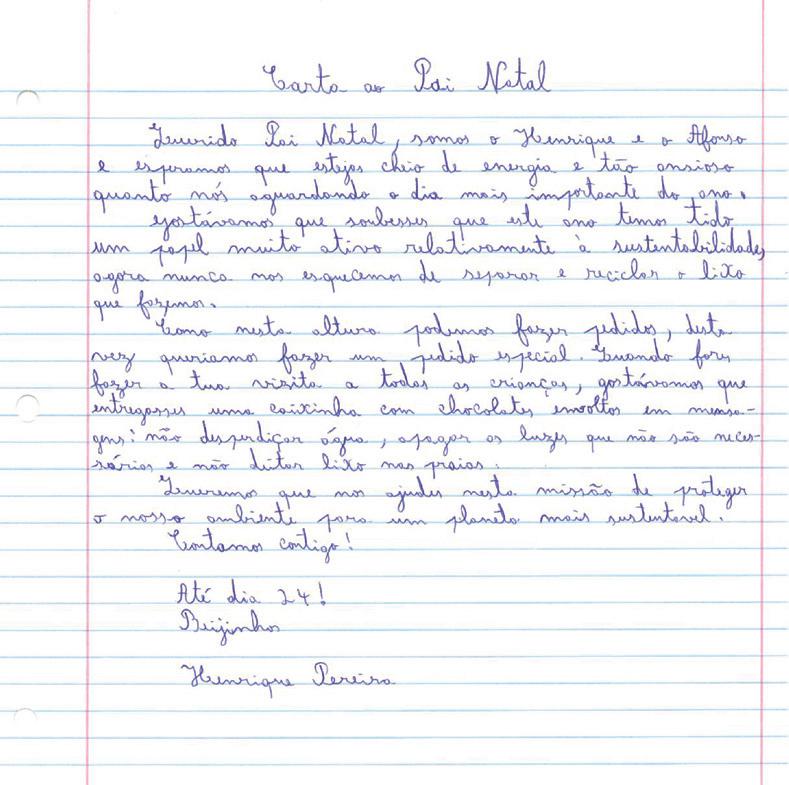 Carta ao Pai Natal
Querido Pai Natal, somos o Henrique e o Afonso
e esperamos que estejas cheio de energia e tão ansioso
quanto nós aguardando o dia mais importante do ano.
Gostávamos que soubesses que este ano temos tido
um papel muito ativo relativamente à sustentabilidade,
agora nunca nos esquecemos de separar e reciclar o lixo
que fazemos.
Como nesta altura podemos fazer pedidos, desta
vez queriamos fazer um pedido especial. Quando fores
fazer a tua visita a todas as crianças, gostávamos que
entregasses uma caixinha com chocolates envoltos em mensa-
gens: não desperdiçar água, apagar as luzes que não são neces-
sárias e não deitar lixo nas praias.
Queremos que nos ajudes nesta missão de proteger
o nosso ambiente para um planeta mais sustentavel.
Contamos contigo!
Até dia 24!
Beijinhos
Henrique Pereira